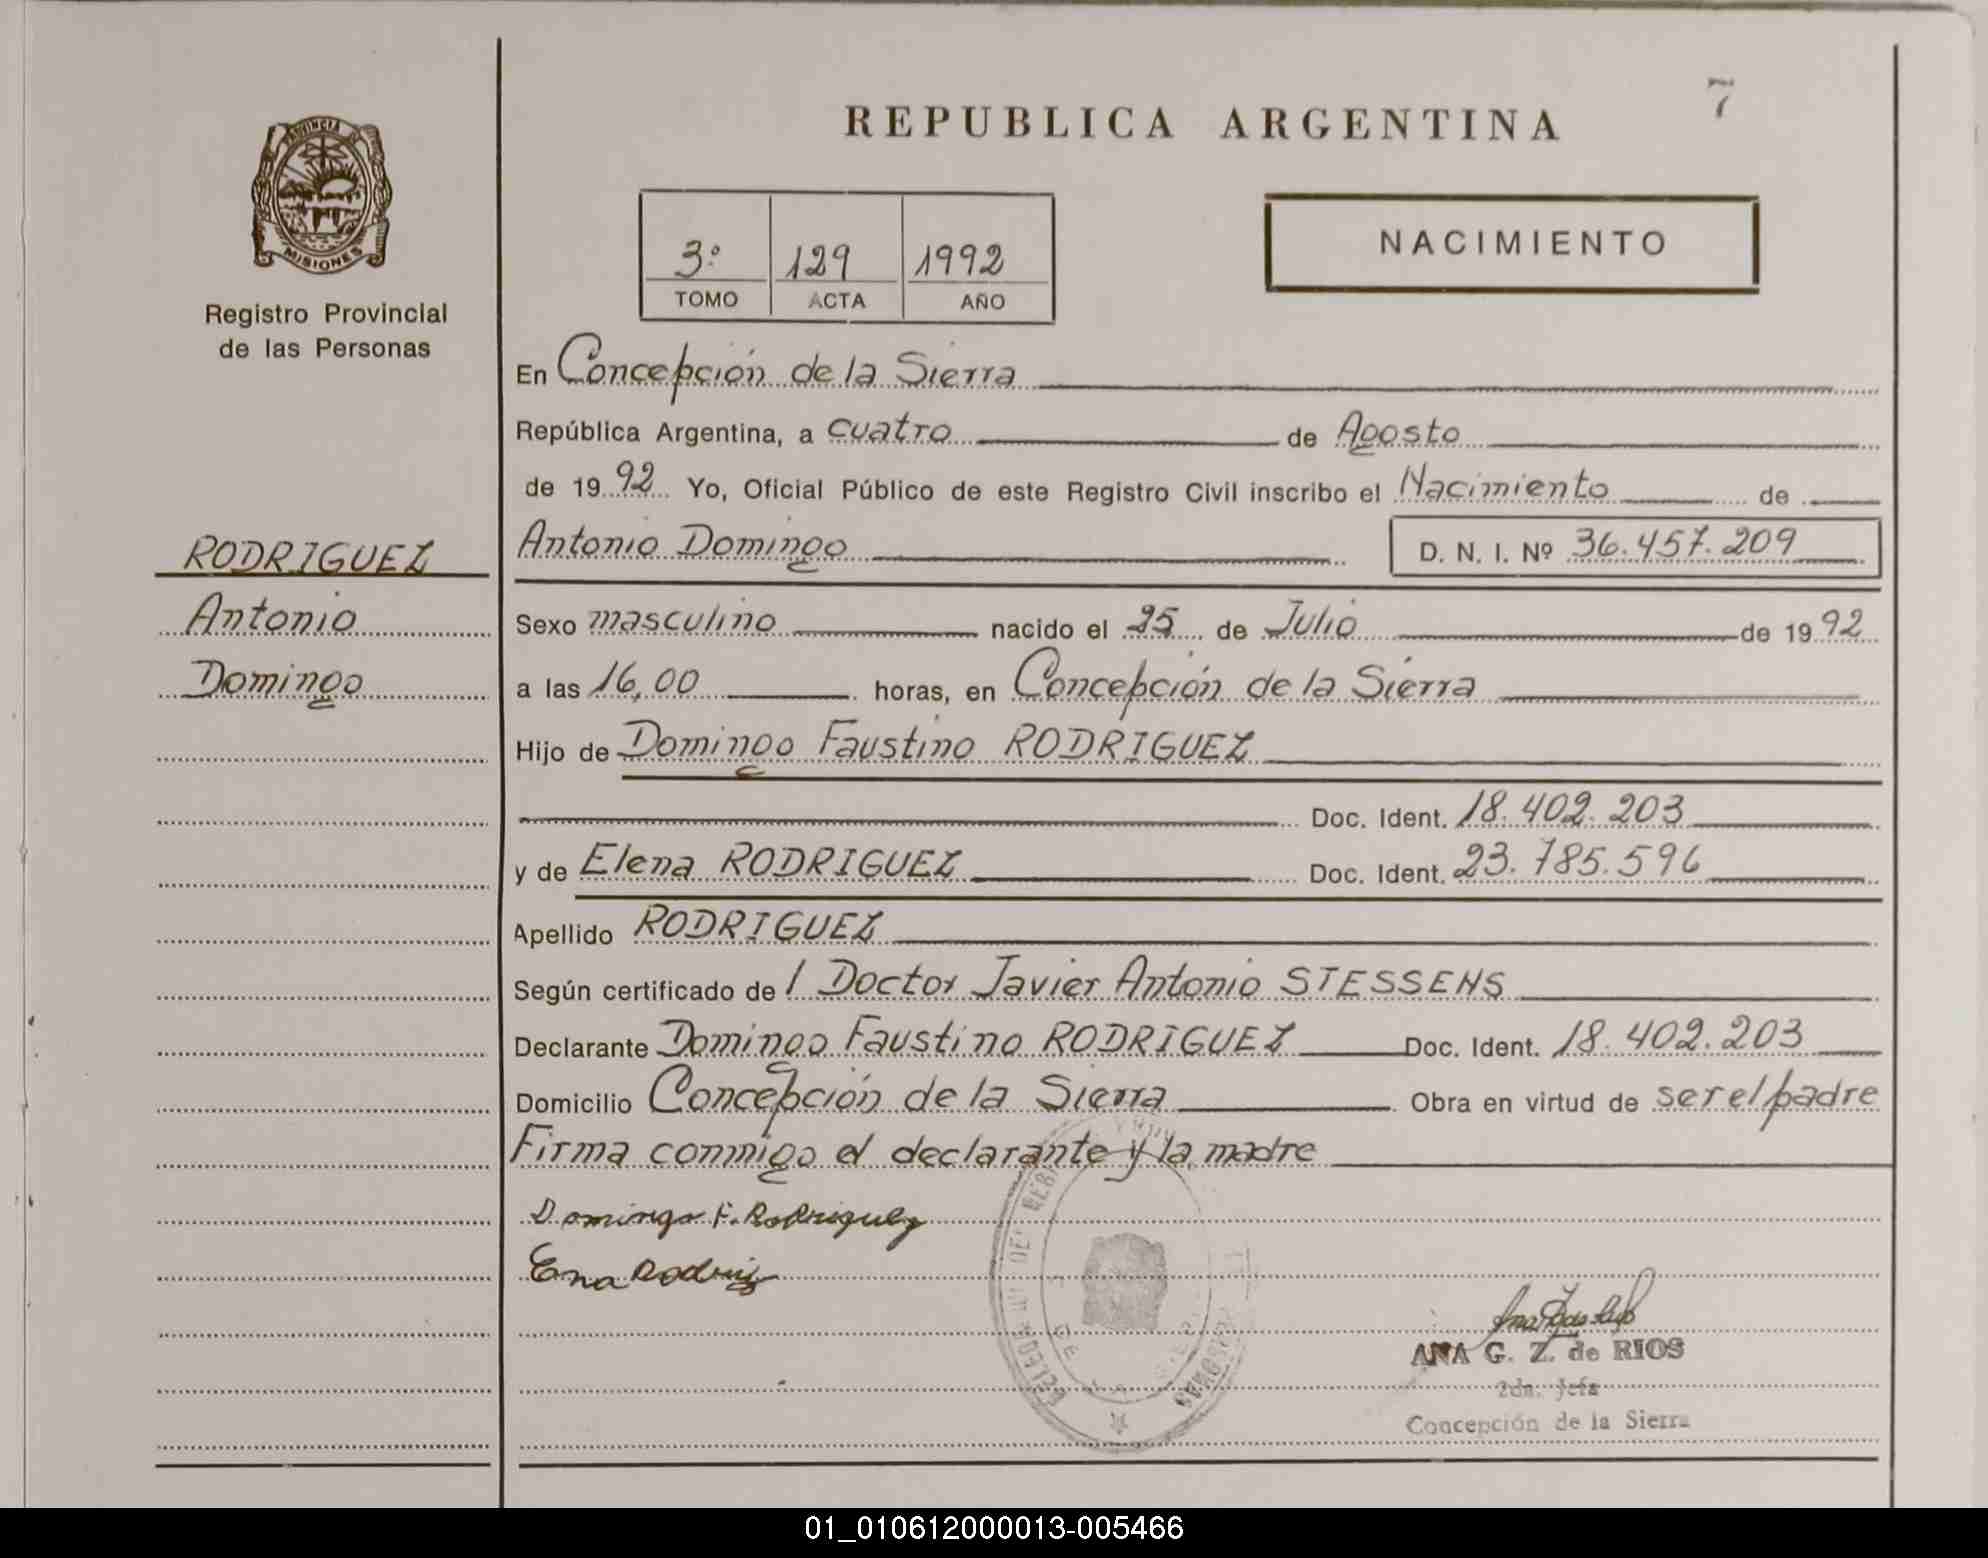 7
REPUBLICA ARGENTINA
PROVINCIA DE
MISIONES
Registro Provincial
de las Personas
3º 129 1992
TOMO ACTA AÑO
NACIMIENTO
En Concepción de la Sierra
República Argentina, a cuatro de Agosto
de 1992 Yo, Oficial Público de este Registro Civil inscribo el Nacimiento de
RODRIGUEZ
Antonio Domingo D. N. I. Nº 36.457.209
Antonio
Sexo masculino nacido el 25 de Julio de 1992
Domingo
a las 16,00 horas, en Concepción de la Sierra
Hijo de Domingo Faustino RODRIGUEZ
Doc. Ident. 18.402.203
y de Elena RODRIGUEZ Doc. Ident. 23.785.596
Apellido RODRIGUEZ
Según certificado de l Doctor Javier Antonio STESSENS
Declarante Domingo Faustino RODRIGUEZ Doc. Ident. 18.402.203
Domicilio Concepción de la Sierra Obra en virtud de ser el padre
Firma conmigo el declarante y la madre
Domingo F. Rodriguez
Ena Rodriz
ANA G. Z. de RIOS
2da. Jefa
Concepción de la Sierra
01_010612000013-005466